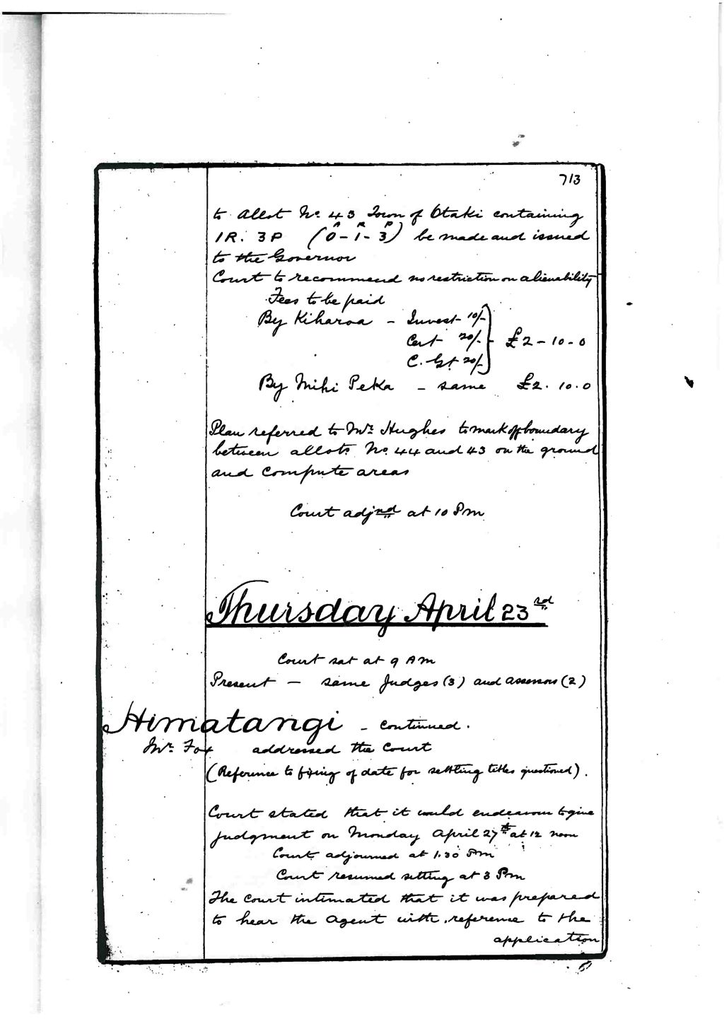 713
to Allot No. 43 Town of Otaki containing
1R. 3P (0 - 1 - 3) be made and issued
A R P
to the Governor
Court to recommend no restriction on alienability
Fees to be paid
By Kiharoa - Invest 10/-
Cert 20/- £2-10-0
C. Gt 20/-
By Mihi Peka - same £2.10.0
Plan referred to Mr. Hughes to mark off boundary
between allots No. 44 and 43 on the ground
and compute areas
Court adjnd at 10 Pm
Thursday April 23rd
Court sat at 9 AM
Present - same Judges (3) and assessors (2)
Himatangi - continued.
Mr. Fox addressed the Court
(Reference to fixing of date for settling titles questioned).
Court stated that it would endeavour to give
judgment on Monday April 27th at 12 noon
Court adjourned at 1.30 Pm
Court resumed sitting at 3 Pm
The Court intimated that it was prepared
to hear the Agent with reference to the
application